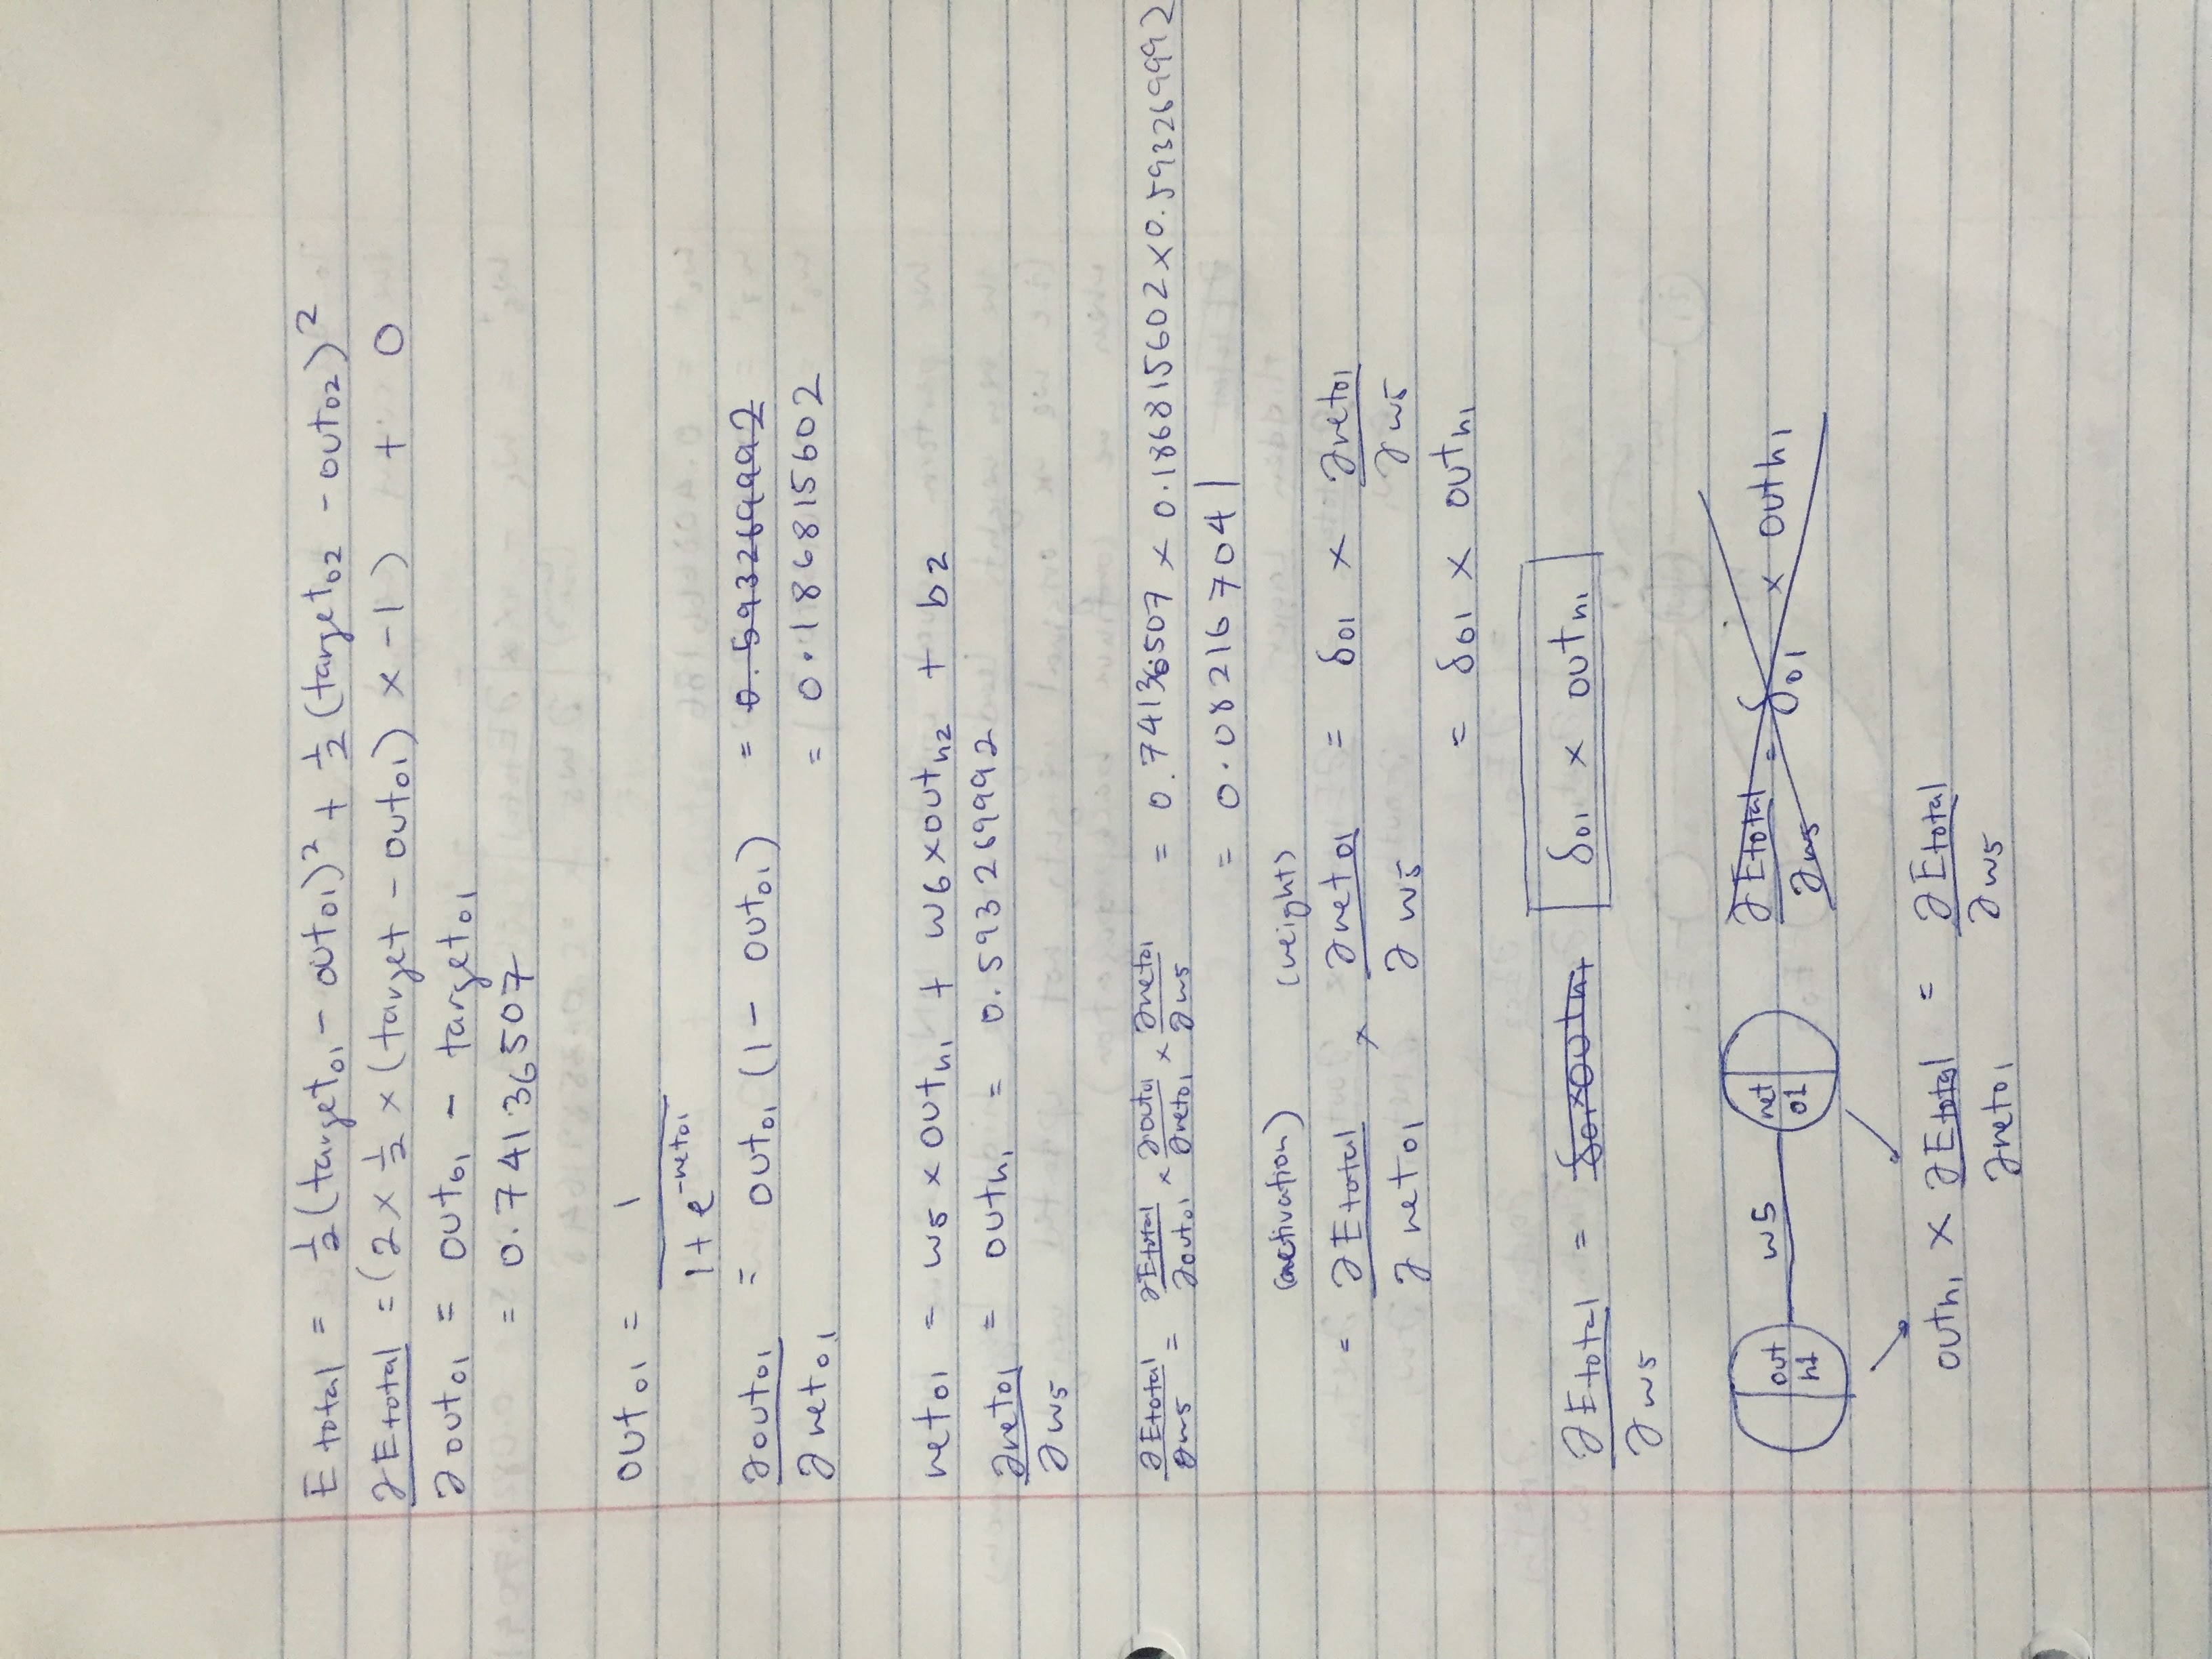 E total = ½(target₀₁ - out₀₁)² + ½(target₀₂ - out₀₂)²
∂Etotal = (2 × ½ × (target - out₀₁) × -1) + 0
∂out₀₁ = out₀₁ - target₀₁
= 0.74136507
out₀₁ = 1
1 + e^-net₀₁
∂out₀₁ = out₀₁ (1 - out₀₁) = 0.593269992
∂net₀₁ = 0.186815602
net₀₁ = w5 × outₕ₁ + w6 × outₕ₂ + b2
∂net₀₁ = outₕ₁ = 0.593269992
∂w5
∂Etotal/∂w5 = ∂Etotal/∂out₀₁ × ∂out₀₁/∂net₀₁ × ∂net₀₁/∂w5 = 0.74136507 × 0.186815602 × 0.593269992
= 0.082167041
(activation) (weight)
= ∂Etotal × ∂net₀₁ = δ₀₁ × ∂net₀₁
∂net₀₁ ∂w5 ∂w5
= δ₀₁ × outₕ₁
∂Etotal = δ₀₁×outₕ₁ δ₀₁ × outₕ₁
∂w5
out h1 w5 net o1 ∂Etotal/∂w5 = δ₀₁ × outₕ₁
outₕ₁ × ∂Etotal = ∂Etotal
∂net₀₁ ∂w5